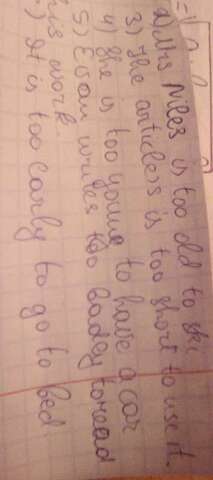 2) Mrs Niles is too old to ski
3) The articless is too short to use it.
4) She is too young to have a car
5) Esan writes too badey to read
his work.
) It is too early to go to bed